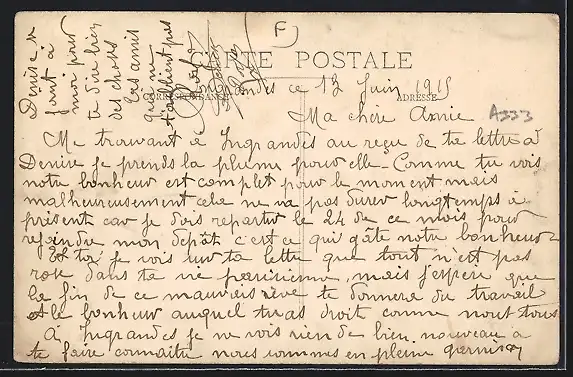 F
CARTE POSTALE
CORRESPONDANCE
ADRESSE
A333
Denise se
joint à
moi pour
te dire bien
des choses
les amis
que ne
t'oublient pas
Ingrandes ce 13 Juin 1915
Ma chère Amie
Me trouvant à Ingrandes au reçu de ta lettre à
Denise je prends la plume pour elle. Comme tu vois
notre bonheur est complet pour le moment mais
malheureusement cela ne va pas durer longtemps à
présent car je dois repartir le 24 de ce mois pour
rejoindre mon dépôt c'est ce qui gâte notre bonheur
Et toi je vois sur ta lettre que tout n'est pas
rose dans ta vie parisienne, mais j'espère que
la fin de ce mauvais rêve te donnera du travail
et le bonheur auquel tu as droit comme nous tous
A Ingrandes je ne vois rien de bien nouveau à
te faire connaître nous sommes en pleine